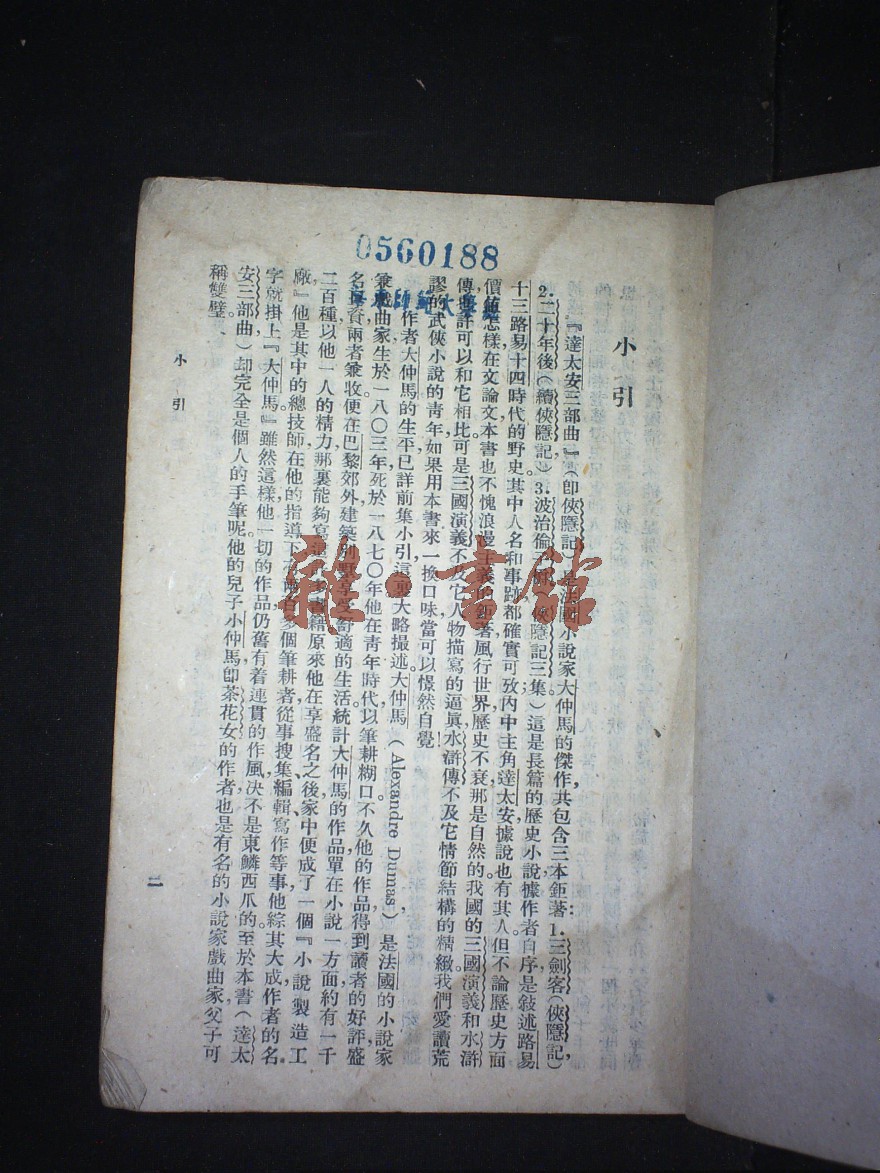 0560188
小引
『達太安三部曲』(即俠隱記)是法國小說家大仲馬的傑作,共包含三本鉅著:1.三劍客(俠隱記),
2.二十年後(續俠隱記)3.波治倫 俠隱記三集)這是長篇的歷史小說據作者自序是敍述路易
十三路易十四時代的野史,其中人名和事跡都確實可攷,內中主角達太安據說也有其人。但不論歷史方面
價值怎樣,在文論文,本書也不愧浪漫主義的 著,風行世界,歷史不衰,那是自然的。我國的三國演義和水滸
傳 許可以和它相比,可是三國演義不及它人物描寫的逼眞,水滸傳不及它情節結構的精緻。我們愛讀荒
謬的武俠小說的青年,如果用本書來一換口味,當可以憬然自覺!
作者大仲馬的生平,已詳前集小引,這裏大略撮述。大仲馬(Alexandre Dumas),是法國的小說家
兼戲曲家,生於一八〇三年,死於一八七〇年。他在靑年時代,以筆耕糊口,不久他的作品得到讀者的好評,盛
名 資,兩者兼收,便在巴黎郊外建築別墅,享受舒適的生活。統計大仲馬的作品,單在小說一方面,約有一千
二百種,以他一人的精力,那裏能夠寫 書籍,原來他在享盛名之後,家中便成了一個『小說製造工
廠,』他是其中的總技師,在他的指導下, 多個筆耕者,從事搜集、編輯、寫作等事,他綜其大成,作者的名
字就掛上『大仲馬』雖然這樣,他一切的作品,仍舊有着連貫的作風,決不是東鱗西爪的。至於本書(達太
安三部曲)却完全是個人的手筆呢。他的兒子小仲馬,即茶花女的作者,也是有名的小說家戲曲家,父子可
稱雙璧。
小引
二
雅·書館